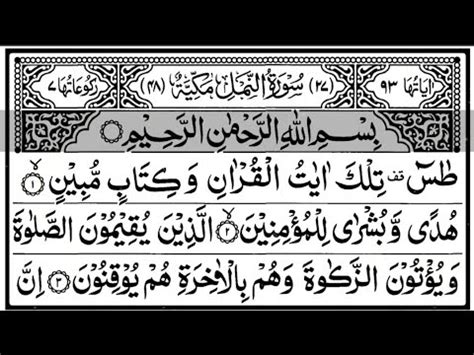 اٰیَاتُهَا ٩٣ (٢٧) سُوْرَةُ النَّمْلِ مَكِّيَّةٌ (٤٨) رُكُوْعَاتُهَا ٧
بِسْمِ اللّٰهِ الرَّحْمٰنِ الرَّحِيْمِ
طٰسٓ قف تِلْكَ اٰيٰتُ الْقُرْاٰنِ وَ كِتَابٍ مُّبِيْنٍ ١
هُدًى وَّ بُشْرٰى لِلْمُؤْمِنِيْنَ ٢ الَّذِيْنَ يُقِيْمُوْنَ الصَّلٰوةَ
وَ يُؤْتُوْنَ الزَّكٰوةَ وَ هُمْ بِالْاٰخِرَةِ هُمْ يُوْقِنُوْنَ ٣ اِنَّ